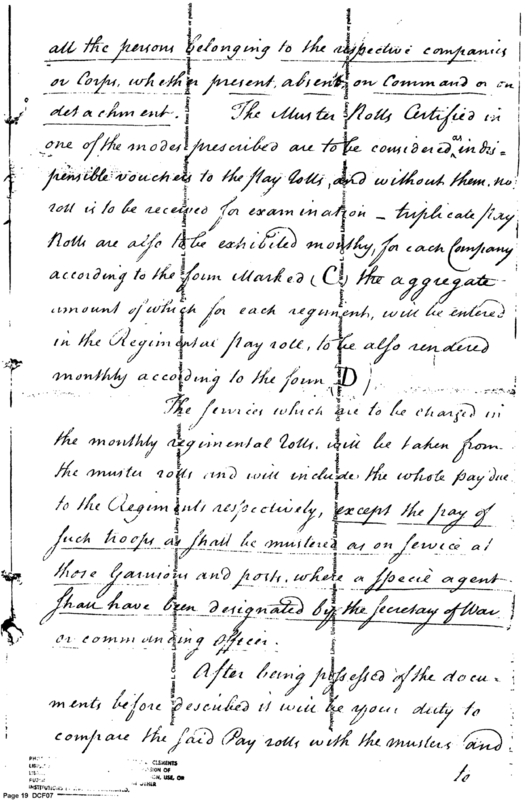 all the persons belonging to the respective companies
or Corps, whether present, absent, on Command or on
detachment. The Muster Rolls Certified in
one of the modes prescribed are to be considered as indis=
pensible vouchers to the Pay Rolls, and without them, no
roll is to be received for examination — triplicate Pay
Rolls are also to be exhibited monthly, for each Company
according to the form Marked (C) the aggregate
amount of which for each regiment, will be entered
in the Regimental Pay roll, to be also rendered
monthly according to the form (D)
The services which are to be charged in
the monthly regimental Rolls, will be taken from
the muster rolls and will include the whole pay due
to the Regiments respectively, except the pay of
such troops as shall be mustered as on service at
those Garrisons and posts, where a special agent
shall have been designated by the Secretary of War
or commanding officer.
After being possessed of the docu-
ments before described it will be your duty to
compare the said Pay rolls with the musters and
to
CLEMENTS
Page 19 DCF07